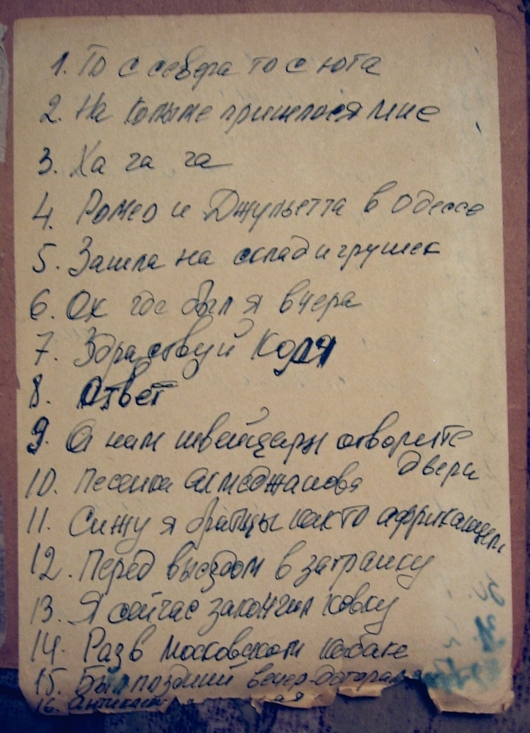 1. То с севера то с юга
2. На Колыме пришлося мне
3. Ха га га
4. Ромео и Джульетта в Одессе
5. Зашла на склад игрушек
6. Ох где был я вчера
7. Здравствуй Коля
8. Ответ
9. А нам швейцары отворите
двери
10. Песенка Алмеджанова
11. Сижу я братцы както африканцем
12. Перед выездом в загранку
13. Я сейчас закончил ковку
14. Раз в московском кабаке
15. Был поздний вечер
16.